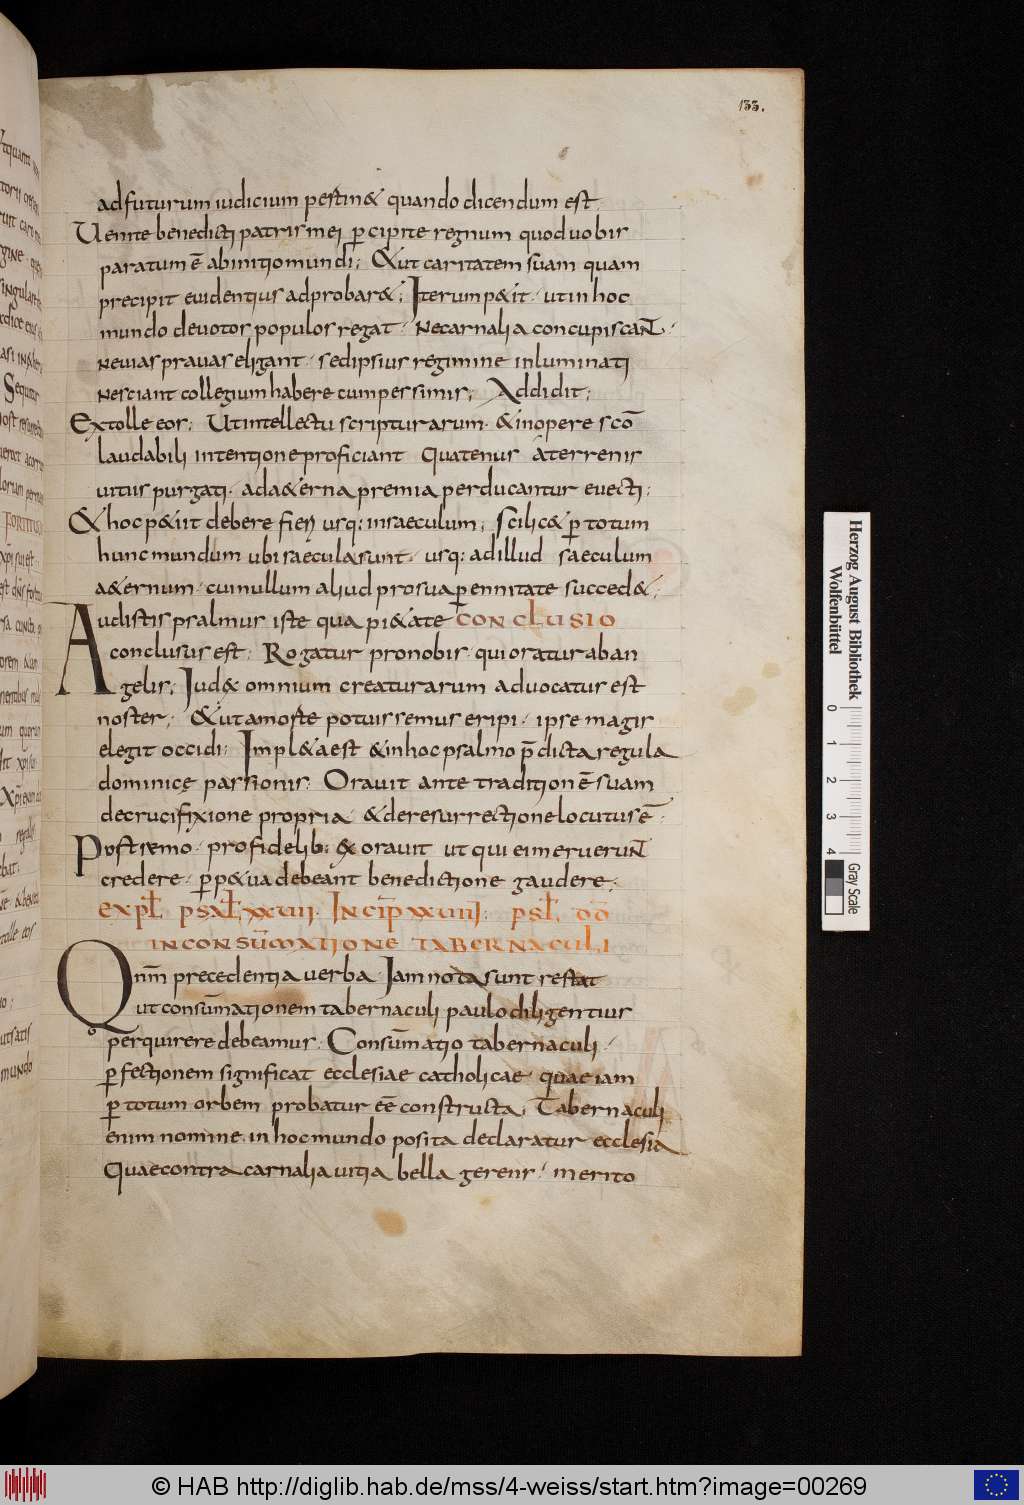 133.
adfuturum iudicium pestin& quando dicendum est.
Uenite benedicti patris mei p̱cipite regnum quod uobis
paratum ē ab initio mundi; &ut caritatem suam quam
precipit euidentius adprobar&; Iterum p&it. ut in hoc
mundo deuotos populos regat. Ne carnalia concupiscaNT.
Ne uias prauas eligant. sed ipsius regimine inluminati
Nesciant collegium habere cum pessimis; Addidit;
Extolle eos; Ut intellectu scripturarum. &in opere scō
laudabili intentione proficiant Quatenus a terrenis
uitiis purgati. ad a&erna premia perducantur euecti;
&hoc p&iit debere fieri usq; in saeculum; Scilic& p̱ totum
hunc mundum ubi saecula sunt. usq; ad illud saeculum
a&ernum. cui nullum aliud pro sua p̱ennitate succed&;
Audistis psalmus iste qua pi&ate CONCLUSIO
conclusus est; Rogatur pro nobis. qui oratur ab an
gelis; Iud& omnium creaturarum aduocatus est
noster; &ut a morte potuissemus eripi. ipse magis
elegit occidi; Impl&a est &in hoc psalmo p̄dicta regula
dominicę passionis; Orauit ante traditionē suam
de crucifixione propria. &de resurrectione locutus ē.
Postremo. pro fidelib; & orauit ut qui ei meruerūNT
credere. p̱p&ua debeant benedictione gaudere;
EXPL̄ PSAL̄ XXVII. INCIP̄ XXVIII. PSL̄ DD̄
IN CONSŪMATIONE TABERNACULI
Qnm̄ precedentia uerba Iam nota sunt restat
ut consūmationem tabernaculi paulo diligentius
perquirere debeamus. Consūmatio tabernaculi.
p̱fectionem significat ecclesiae catholicae. quae iam
p̱ totum orbem probatur eē constructa; Tabernaculi
enim nomine. in hoc mundo posita declaratur ecclesia
Quae contra carnalia uitia bella gerens. merito
Herzog August Bibliothek
Wolfenbüttel
0 1 2 3 4
Gray Scale
© HAB http://diglib.hab.de/mss/4-weiss/start.htm?image=00269